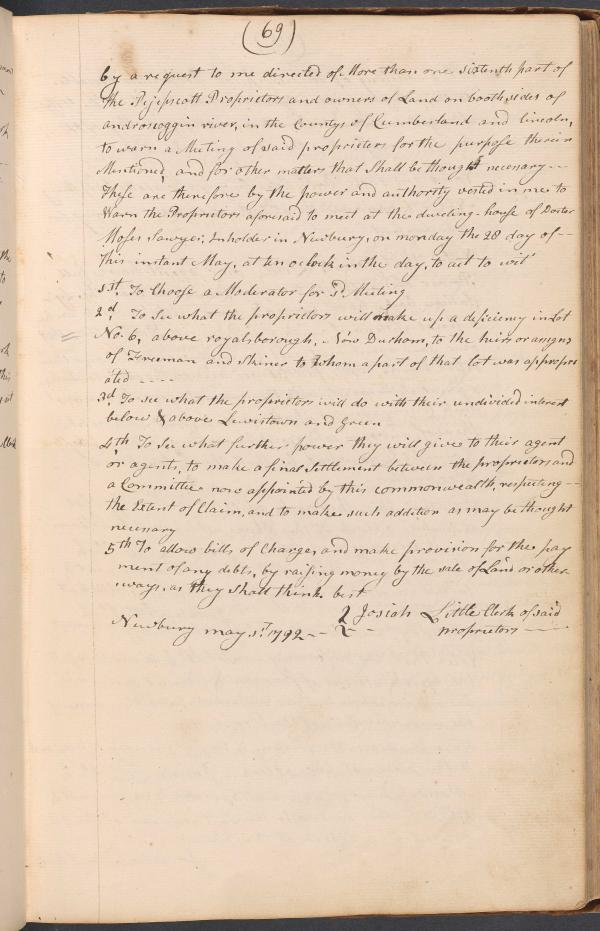 (69)
by a request to me directed of More than one sixtenth part of
the Pejepscott Proprietors and owners of Land on booth sides of
androscoggin river, in the Countys of Cumberland and lincoln,
to warn a Meeting of said proprietors for the purpose therein
Mentioned, and for other matters that Shall be thought necessary --
These are therefore by the power and authority vested in me to
Warn the Proprietors aforesaid to meet at the dweling-house of Docter
Moses Sawyer, Inholder in Newbury, on monday the 28 day of --
This instant May, at ten oclock in the day, to act to wit
1st. To Choose a Moderator for sd. Meeting
2d. To See what the proprietors will make up a deficiency in Lot
= No. 6, above royalsborough, Now Durham, to the heirs or assigns
of Freeman and Skiner to whom a part of that lot was appropri
ated ----
3d To see what the proprietors will do with their undivided interest
below & above Lewistown and Green
4th To See what further power they will give to their agent
or agents, to make a final Settlement between the proprietors and
a Committee now appointed by this commonwealth, respecting --
the Extent of Claim, and to make such addition as may be thought
necessary
5th To allow bills of Charges, and make provision for the pay
ment of any debts, by raising money by the sale of Land or other
ways, as they Shall think best
Josiah Little Clerk of said
Newbury may 1st. 1792 -- proprietors --